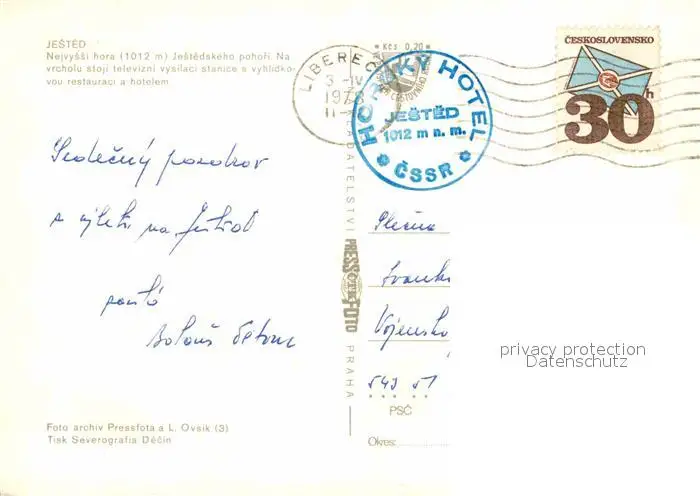 JEŠTĚD
Nejvyšší hora (1012 m) Ještědského pohoří. Na
vrcholu stojí televizní vysílací stanice s vyhlídko-
vou restaurací a hotelem
Kčs 0,20
LIBEREC
3.-IV.
1978
11-
HORSKÝ HOTEL
JEŠTĚD
1012 m n. m.
ČSSR
ČESKOSLOVENSKO
30h
Srdečný pozdrav
z výletu na Ještěd
posílá
Slečna
Vojensko
543 51
NAKLADATELSTVÍ
PRESSFOTO
PRAHA
privacy protection
Datenschutz
PSČ
Okres:
Foto archiv Pressfota a L. Ovsík (3)
Tisk Severografia Děčín